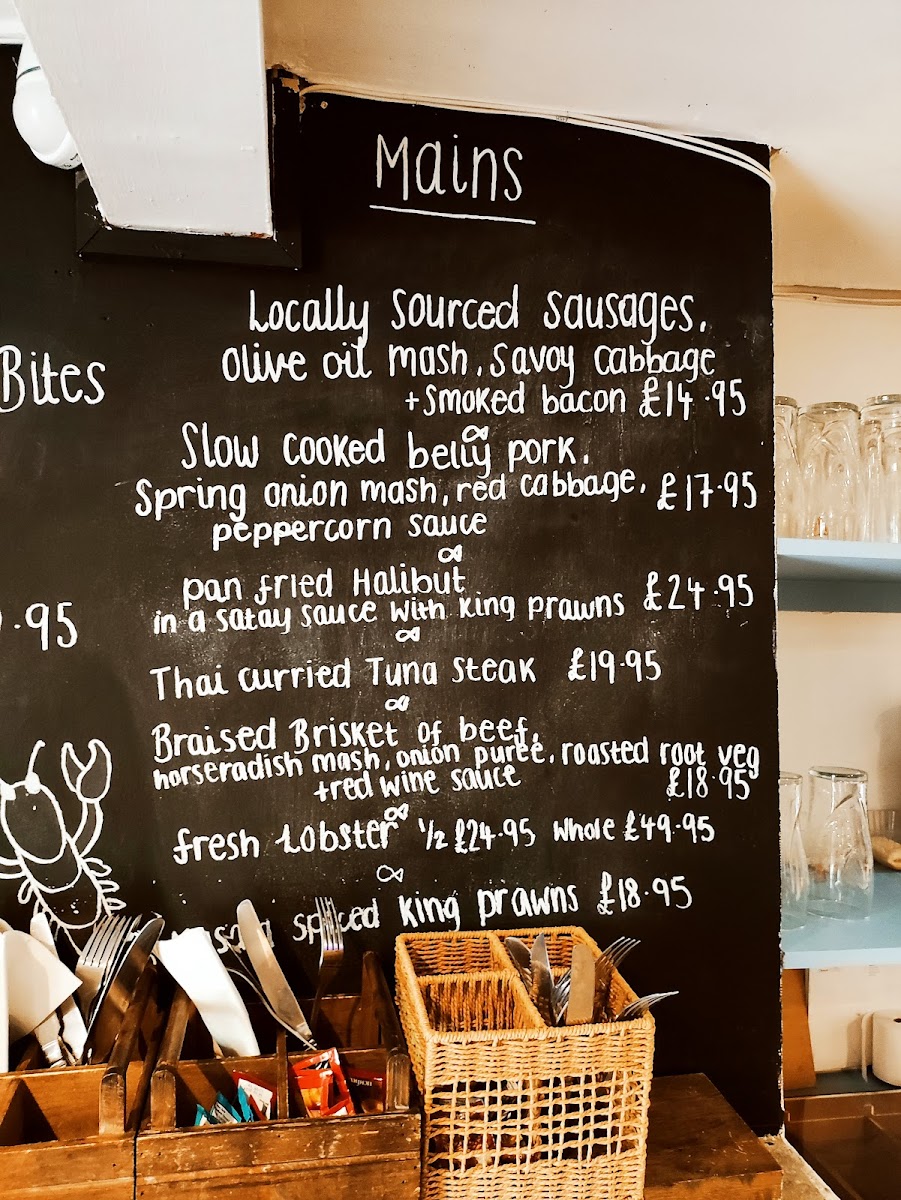 Mains
Locally Sourced Sausages,
Olive oil mash, Savoy cabbage
+ Smoked bacon £14.95
Slow cooked belly pork,
Spring onion mash, red cabbage, £17.95
peppercorn sauce
pan fried Halibut
in a satay sauce with king prawns £24.95
Thai curried Tuna Steak £19.95
Braised Brisket of beef,
horseradish mash, onion purée, roasted root veg
+red wine sauce £18.95
fresh Lobster ½ £24.95 Whole £49.95
spiced king prawns £18.95
Bites
.95